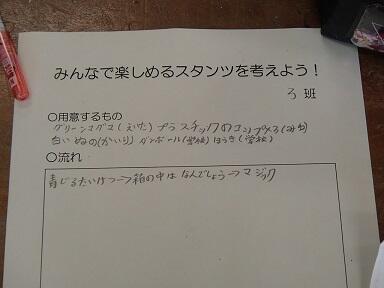 みんなで楽しめるスタンツを考えよう！
3 班
○用意するもの
グリーンマグマ(えいた) プラスチックのコップ×3(みお)
白いぬの(かいり) ダンボール(学校) ほうき(学校)
○流れ
青じるたいけつ→箱の中はなんでしょう→マジック